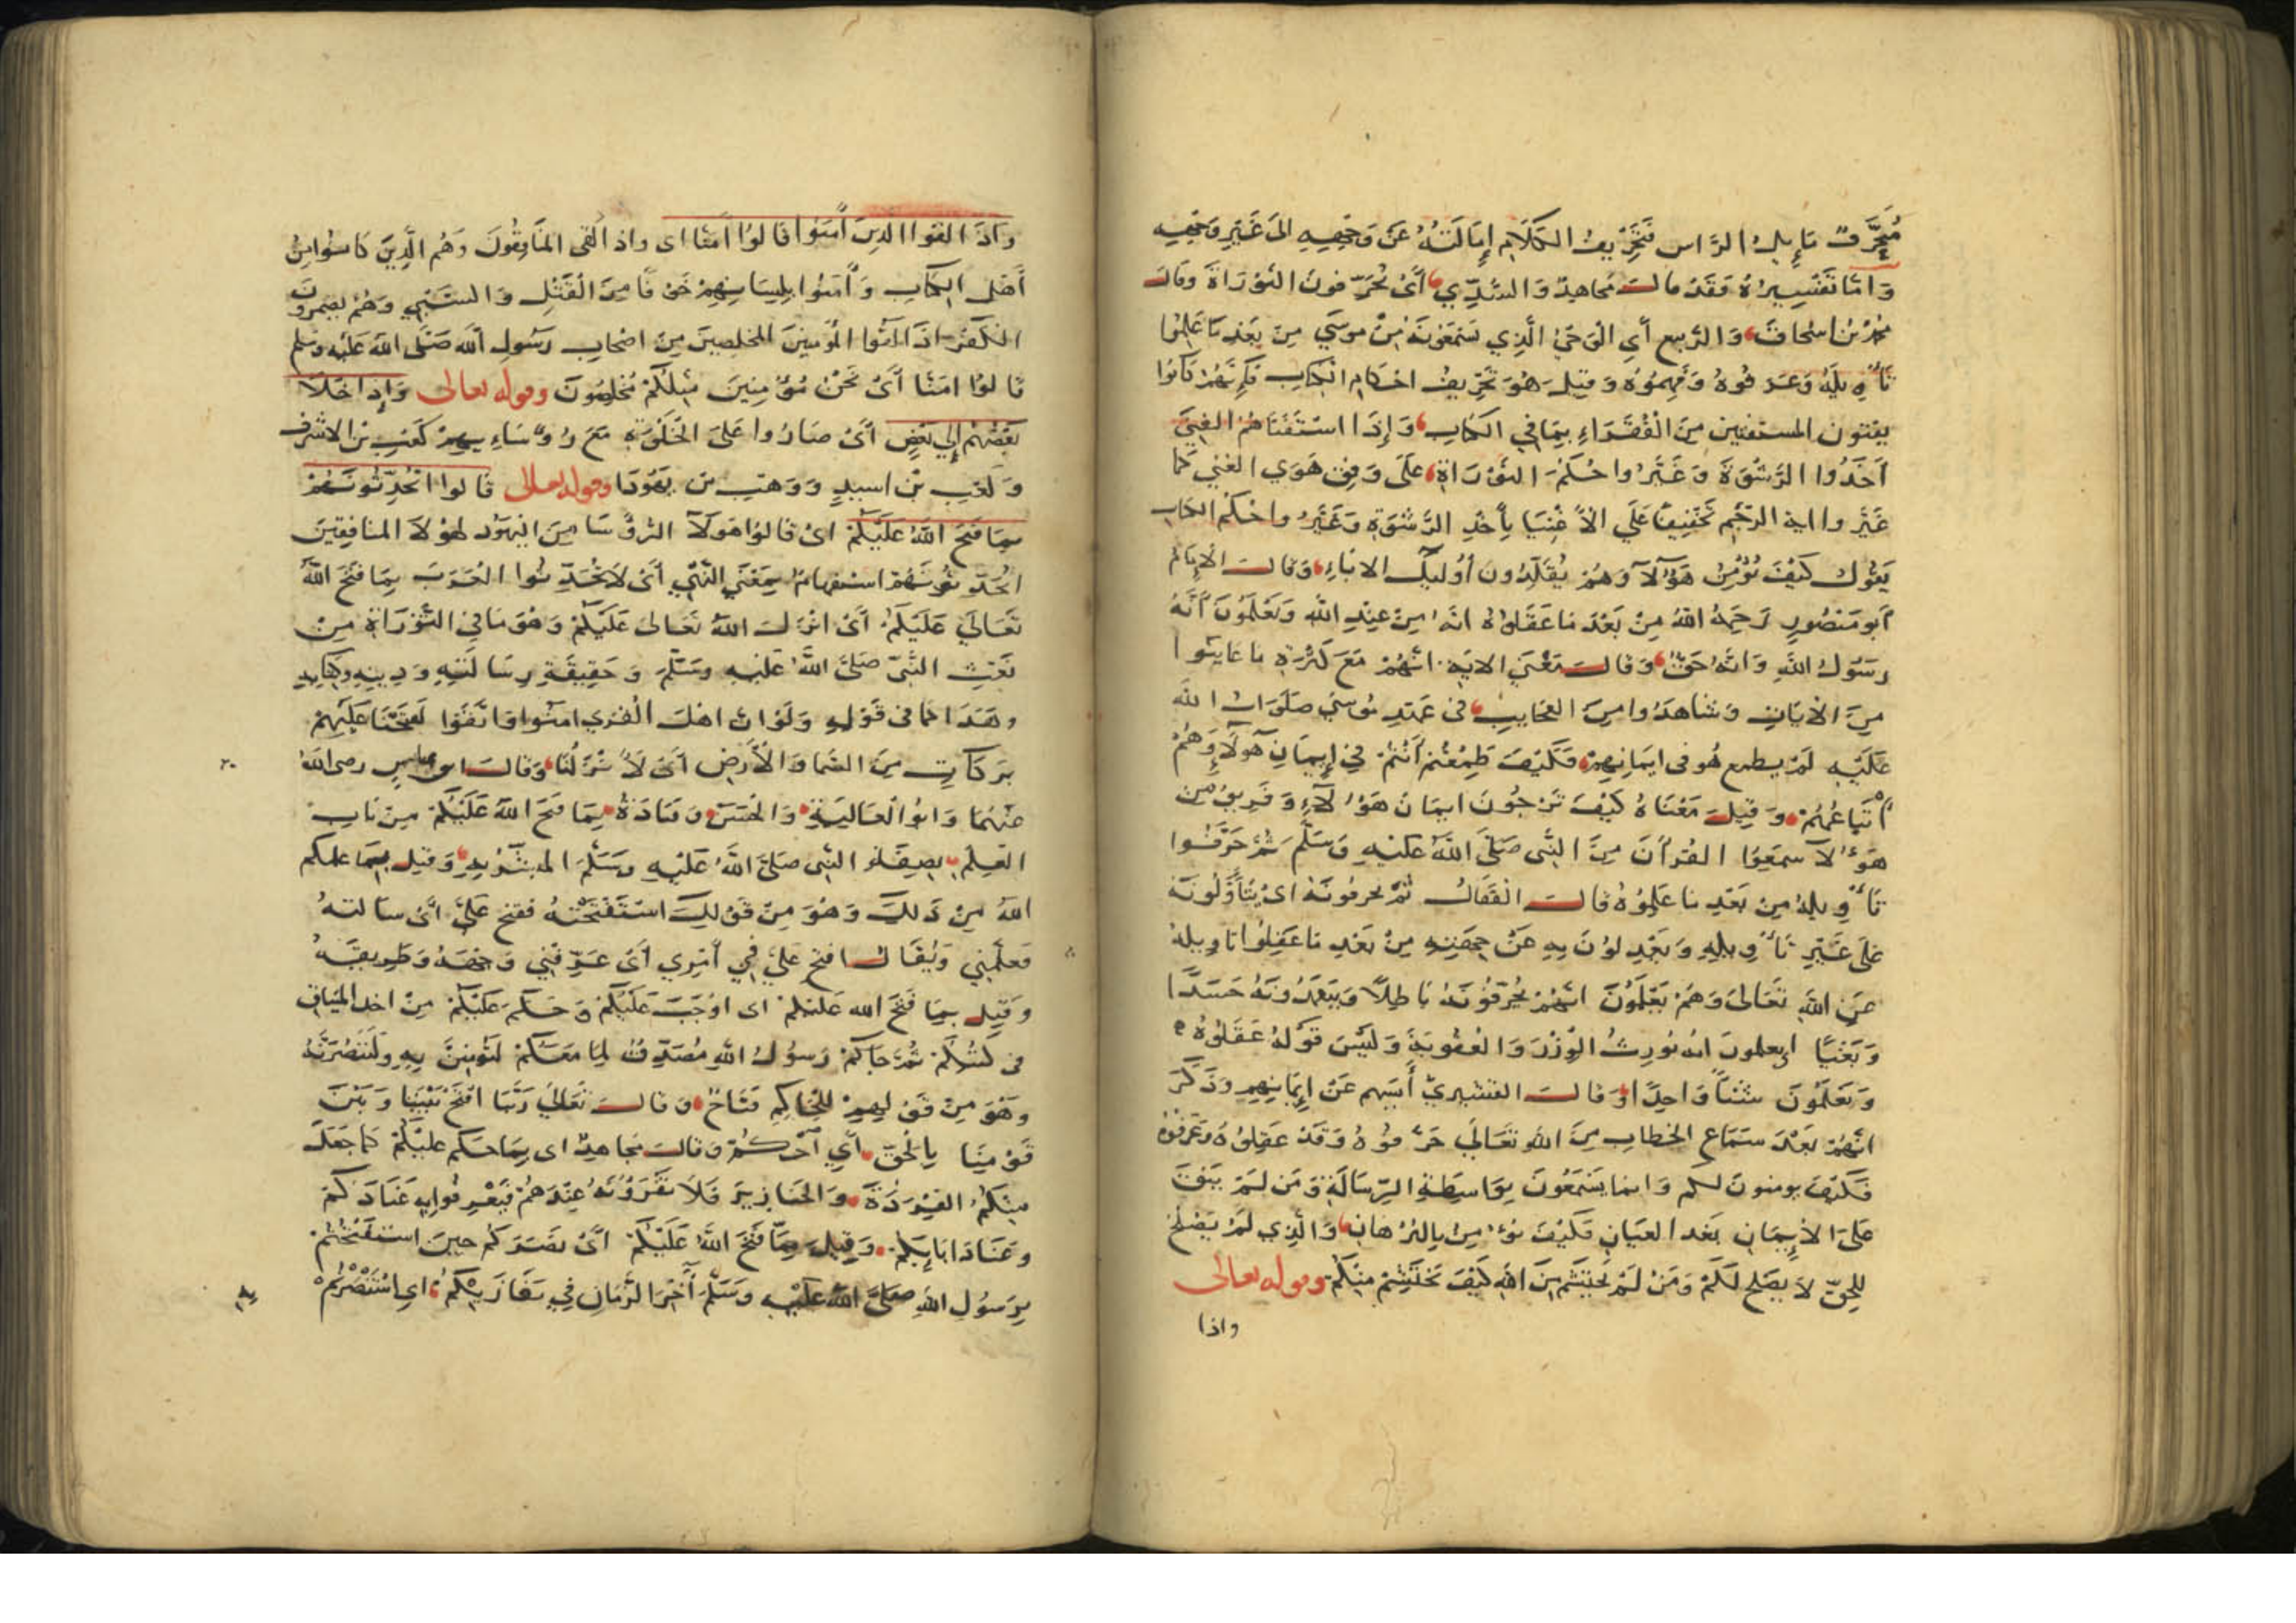 مُحَرَّفٌ مَايِلُ الرَّاس فَتَحْرِيفُ الكَلَامِ إِمَالَتُهُ عَنْ وَجْهِهِ الىَ غَيْرِ وَجْهِهِ
وَامَّا تَفْسِيرُهُ فَقَدْ قالَ مُجاهِدٌ وَالسُّدِّي أىْ يُحَرّفونَ التوْرَاةَ وقال
محمد بْنُ اسْحَاقَ وَالرَّبيع أىِ الْوَحْىَ الَّذِي سَمَعُونَهُ مِنْ موسَي مِنْ بَعْدِ مَا عَلِمُوا
تَأْوِيلَهُ وَعَرَفُوهُ وَفَهِمُوُهُ وَقيلَ هُوَ تَحْرِيفُ احْكَامِ الكِتَابِ فَاِنَّهُمْ كَانُوا
يفتون المستفتين مِنَ الْفُقَرَاءِ بِمَا فِي الكِتَابِ وَإِذَا اسْتَفْتَاهُمُ الغَنِيُّ
اَخَذُوا الرِّشْوَةَ وَغَيَّرُوا حُكْمَ التوْرَاةِ عَلَى وَفِقِ هَوَي الغَنِي كَمَا
غَيَّروا اية الرَّجْمِ تَخْفِيفًا عَلَي الاغْنِيَا بِأَخْذِ الرَّشْوَةِ وَغَيَّرُوا حُكْمَ الكتابِ
يَقُول كَيْفَ يُؤْمِنُ هَؤُلآ وَهُمْ يُقَلِّدُونَ أُوْلَيِكَ الابَاءِ وَقالَ الْإمَامُ
اَبو مَنْصُورٍ رَحِمَهُ اللهُ مِنْ بَعْدِ مَا عَقَلُوهُ انَهُ مِنْ عِنْدِ اللهِ وَيَعْلَمُونَ أَنَّهُ
رَسُولُ اللهِ وَانَّهُ حَقٌّ وَقالَ مَعْنَي الايَةِ انَّهُمْ مَعَ كَثْرَةِ مَا عَاينُوا
مِنَ الْاَيَاتِ وَشَاهَدُوا مِنَ العَجَايِبِ فى عَهْدِ مُوسَي صَلَوَاتُ الله
عَلَيْهِ لَمْ يطمع هُو فى ايمَانِهِمْ فَكَيْفَ طَمِعْتُمْ اَنْتُمْ فِي إِيمَانِ هَولَاءِ وَهُمْ
أَتْبَاعُهُمْ وَقِيلَ مَعْنَاهُ كَيْفَ تَرْجُونَ ايمَانَ هَؤُلآءِ وَفَرِيقٌ مِنْ
هَؤُلآ سَمِعُوا القُرْأَنَ مِنَ النَّبى صَلَىَ اللهُ عَليْهِ وَسَلَّمَ ثُمَّ حَرَّفُوا
تَأْوِيلَهُ مِنْ بَعْدِ مَا عَلِمُوُهُ قَالَ الْقَفَّالُ ثُمَّ يحرفُونَهُ اىْ يَتَأَوَّلُونَهُ
عَلىَ غَيْرِ تَأْوِيلِهِ وَيَعْدِلُونَ بِهِ عَنْ جِهَتِهِ مِنْ بَعْدِ مَا عَقِلُوا تاويله
عَنِ اللهِ تَعَالىَ وَهُمْ يَعْلَمُونَ انَّهُمْ يُحَرّفُونَهُ بَاطِلًا وَيَتَعَمَّدُونَهُ حَسَدًا
وَبَغْيًا اي يعلمونَ انه يُورِثُ الْوِزْرَ وَالعُقُوبَةَ وَلَيْسَ قَوْلُهُ عَقَلُوهُ
وَيَعْلَمُونَ شَيْئًا وَاحِدًا وَقَالَ القشَيرىّ أَيَسَهم عَنْ إِيمَانِهِم وَذَكَرَ
انَّهُمْ بَعْدَ سَمَاعِ الخطابِ مِنَ اللهِ تَعَالَى حَرَّفُوهُ وَقَدْ عَقِلُوُهُ وَعَرَفُوهُ
فَكَيْفَ يومنونَ لكم وَانما يَسْمَعُونَ بِوَاسِطَةِ الرِّسَالَةِ وَمَن لَمْ يَبْقَ
عَلىَ الْاِيمَانِ بَعْدَ العَيَانِ فَكَيْفَ يُؤْمِنُ بِالبُرْهَانِ وَالَّذِي لَمْ يَصْلُحْ
لِلحِقِّ لَا يَصْلحُ لَكُمْ وَمَنْ لَمْ يَحْتَشَمْ مِنَ اللهِ كَيْفَ يَحْتَشِمُ مِنْكُمْ وقوله تعالى
واذا
وَاذَا لقوا الَّذِينَ أمَنُوا قَالُوا أَمَنَّا اى وَاذا لَقى المنَافِقُونَ وَهُم الَّذِينَ كَانُوا مِنْ
أَهْلِ الكِتَابِ وَأَمَنُوا بِلِسَانِهِمْ خَوْفًا مِنَ الْقَتْلِ وَالسَّبْيِ وَهُمْ يضمرونَ
الكفْرَ اذَا لَقُوا المُؤْمِنينَ المخلصِينَ مِنْ اصْحابِ رَسُولِ اللهِ صَلَّى اللهُ عَلَيْهِ وَسَلم
قَالُوا امَنَّا أَىْ نَحْنُ مُؤْمِنِينَ مِثلُكُمْ مُخْلِصُونَ وقوله تعالى وَإِذَا خَلَا
بَعْضُهُمْ إِلي بَعْضٍ أَىْ صَارُوا عَلىَ الْخَلْوَةِ مَعَ رُؤَسَاءِيهِمْ كَعْبِ بْنِ الاشْرَفِ
وَكَعْبِ بْنِ اسيدٍ وَوَهْبِ بن يَهُودَا وقوله تعالى قَالوا اتحَدِّثُونَهُمْ
بِمَا فَتَحَ اللهُ عَلَيْكُمْ اىْ قَالُوا هَولآ الرُّؤُسَا مِنَ اليَهُود لهَوْلَا المنَافِقينَ
اتُحَدِّثُونَهُمْ استفهَامٌ بِمَعْنَي النَّهْي أَىْ لَا تُحَدِّثُوا العَرَبَ بِمَا فَتَحَ اللهُ
تَعَالَي عَلَيْكُمْ أَىْ انْزَلَ اللهُ تَعَالىَ عَلَيْكُمْ وَهُوَ مَا في التَّوْرَاةِ مِنْ
نَعْتِ النَّبىّ صَلىَ اللهُ عَليْهِ وَسَلَّمَ وَحَقِيقَةِ رِسَالَتِهِ وَدِينِهِ وَكتَابِهِ
وَهَذَا كَمَا فى قَوْلِهِ وَلَوْ انَّ اهْلَ الْقُرَي امَنُوا وَاتَّقَوَا لَفَتَحْنَا عَلَيْهِمْ
بَرَكَاتٍ مِنَ السَّمَا وَالْأَرْضِ أَىْ لَأَنْزَلْنَا وَقَالَ ابن عباسٍ رضى اللهُ
عَنْهُمَا وَابُو الْعَالِيَةِ وَالحَسَن وَقَتَادَةُ بِمَا فَتَحَ اللهُ عَلَيْكُمْ مِنْ بَابِ
العِلْمِ بصِفَةِ النَّبى صَلىَ اللهُ عَلَيْهِ وَسَلَّمَ المبَشَّرِ بِهِ وَقيل بِمَا علمكم
اللهُ مِنْ ذَلكَ وَهُوَ مِنْ قَوْلِكَ اسْتَفْتَحْتُهُ فَفتحَ عَلَيَّ أَىْ سَالتهُ
فَعَلَّمَنِي وَيُقَالُ افتح عَلَيَّ فِي أَمْرِي أَىْ عَرِّفْنِي وَجْهَهُ وَطَرِيقَهُ
وَقِيلَ بِمَا فَتَحَ الله عَلَيْكُمْ اى اوْجَبَ عَلَيْكُمْ وَحَكَمَ عَلَيْكُمْ مِنْ اخذ الميثاقِ
فى كتُبكُمْ ثُمَّ جَاكُمْ رَسُولُ اللهِ مُصَدِّقٌ لِمَا مَعَكُمْ لَتُؤْمِنُنَّ بِهِ وَلَتَنْصُرُنَّهُ
وَهُوَ مِنْ قَوْلِهِمْ لِلْحَاكِمِ فَتَّاحٌ وَقَالَ تَعَالَيَ رَبَّنَا افْتَحْ بَيْنَنَا وَبَيْنَ
قَوْمِنَا بِالْحَقّ أَىِ احْكُمْ وَقَالَ مُجَاهِدٌ اى بِمَا حَكَمَ عليْكُمْ كَمَا جَعَلَ
مِنْكُمُ القِرَدَةَ وَالخَنَازِيرَ فَلَا تُقِرُّونَهُ عِنْدَهُمْ فَيَعْرِفُوا بِهِ عِنَادَكُمْ
وَعِنَادَ ابَايِكُمْ وَقِيلَ بِمَا فَتَحَ اللهُ عَلَيْكُمْ اىْ نَصَرَكُمْ حِينَ اسْتَفْتَحْتُمْ
بِرَسُولِ اللهِ صَلىَ اللهُ عَلَيْهِ وَسَلَّمَ آخِرَ الزَّمَانِ فِي مَغَازِيْكُمْ اىِ اسْتَنْصَرْتُمْ